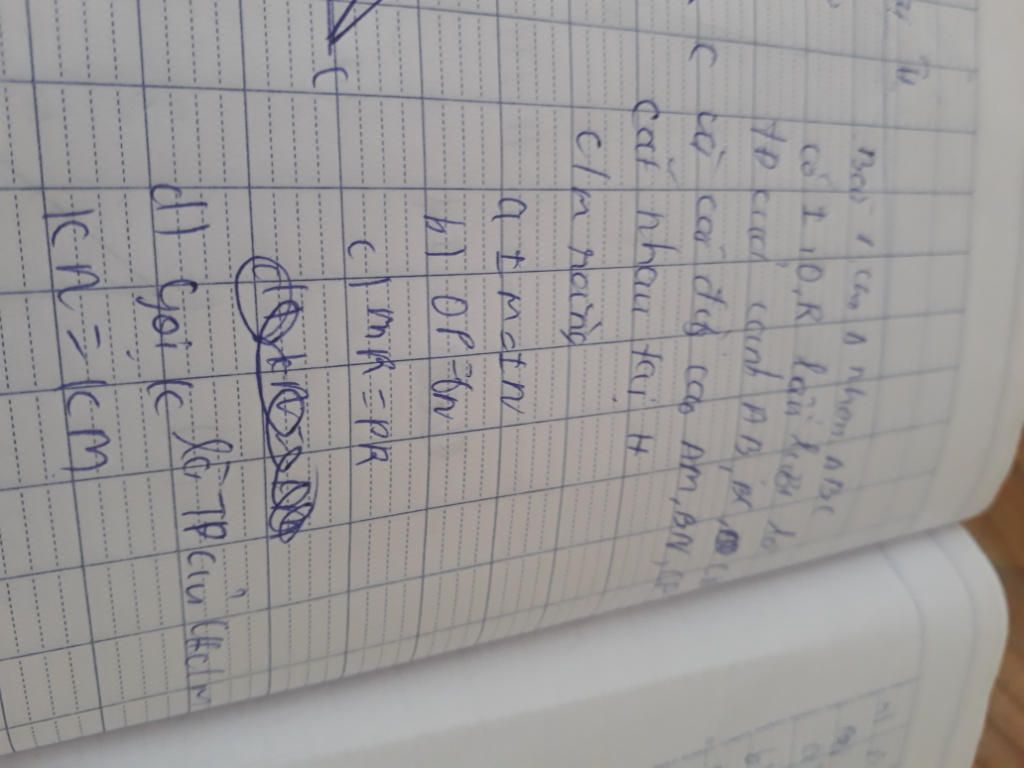 Bài 1 cho Δ nhọn ABC
có I, O, R lần lượt là
TP của cạnh AB, BC,
các đường cao AM, BN,
cắt nhau tại H
C/m rằng
a IM=IN
b) OP=ON
c) MR=PR
d) Gọi K là TP của CH C/m
KN = KM